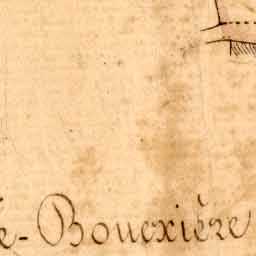 é-Bouexière